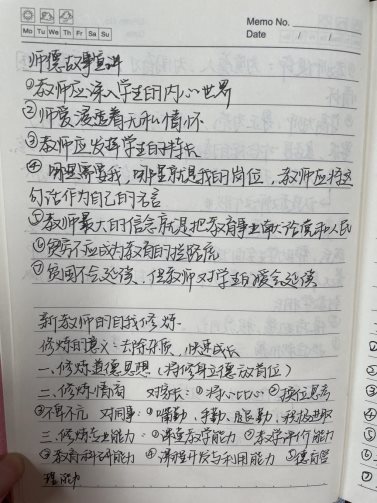 Memo No.
Mo Tu We Th Fr Sa Su
Date / /
师德故事宣讲
①教师应深入学生的内心世界
②师爱浸透着无私情怀
③教师应发扬学生的特长
④哪里需要我，哪里就是我的岗位，教师应将这
句话作为自己的名言
⑤教师最大的信念就是把教育事业献给党和人民
⑥贫穷不应成为教育的拦路虎
⑦贫困不会延续，但教师对学生的暖会延续
新教师的自我修炼
修炼的意义：去除杂质，快速成长
一、修炼道德思想（将修身立德放首位）
二、修炼情商 对家长：①将心比心 ②换位思考
③不卑不亢 对同事：①嘴勤、手勤、腿勤，积极进取
三、修炼专业能力：①课堂教学能力 ②教学评价能力
③教育科研能力 ④课程开发与利用能力 ⑤德育管
理能力